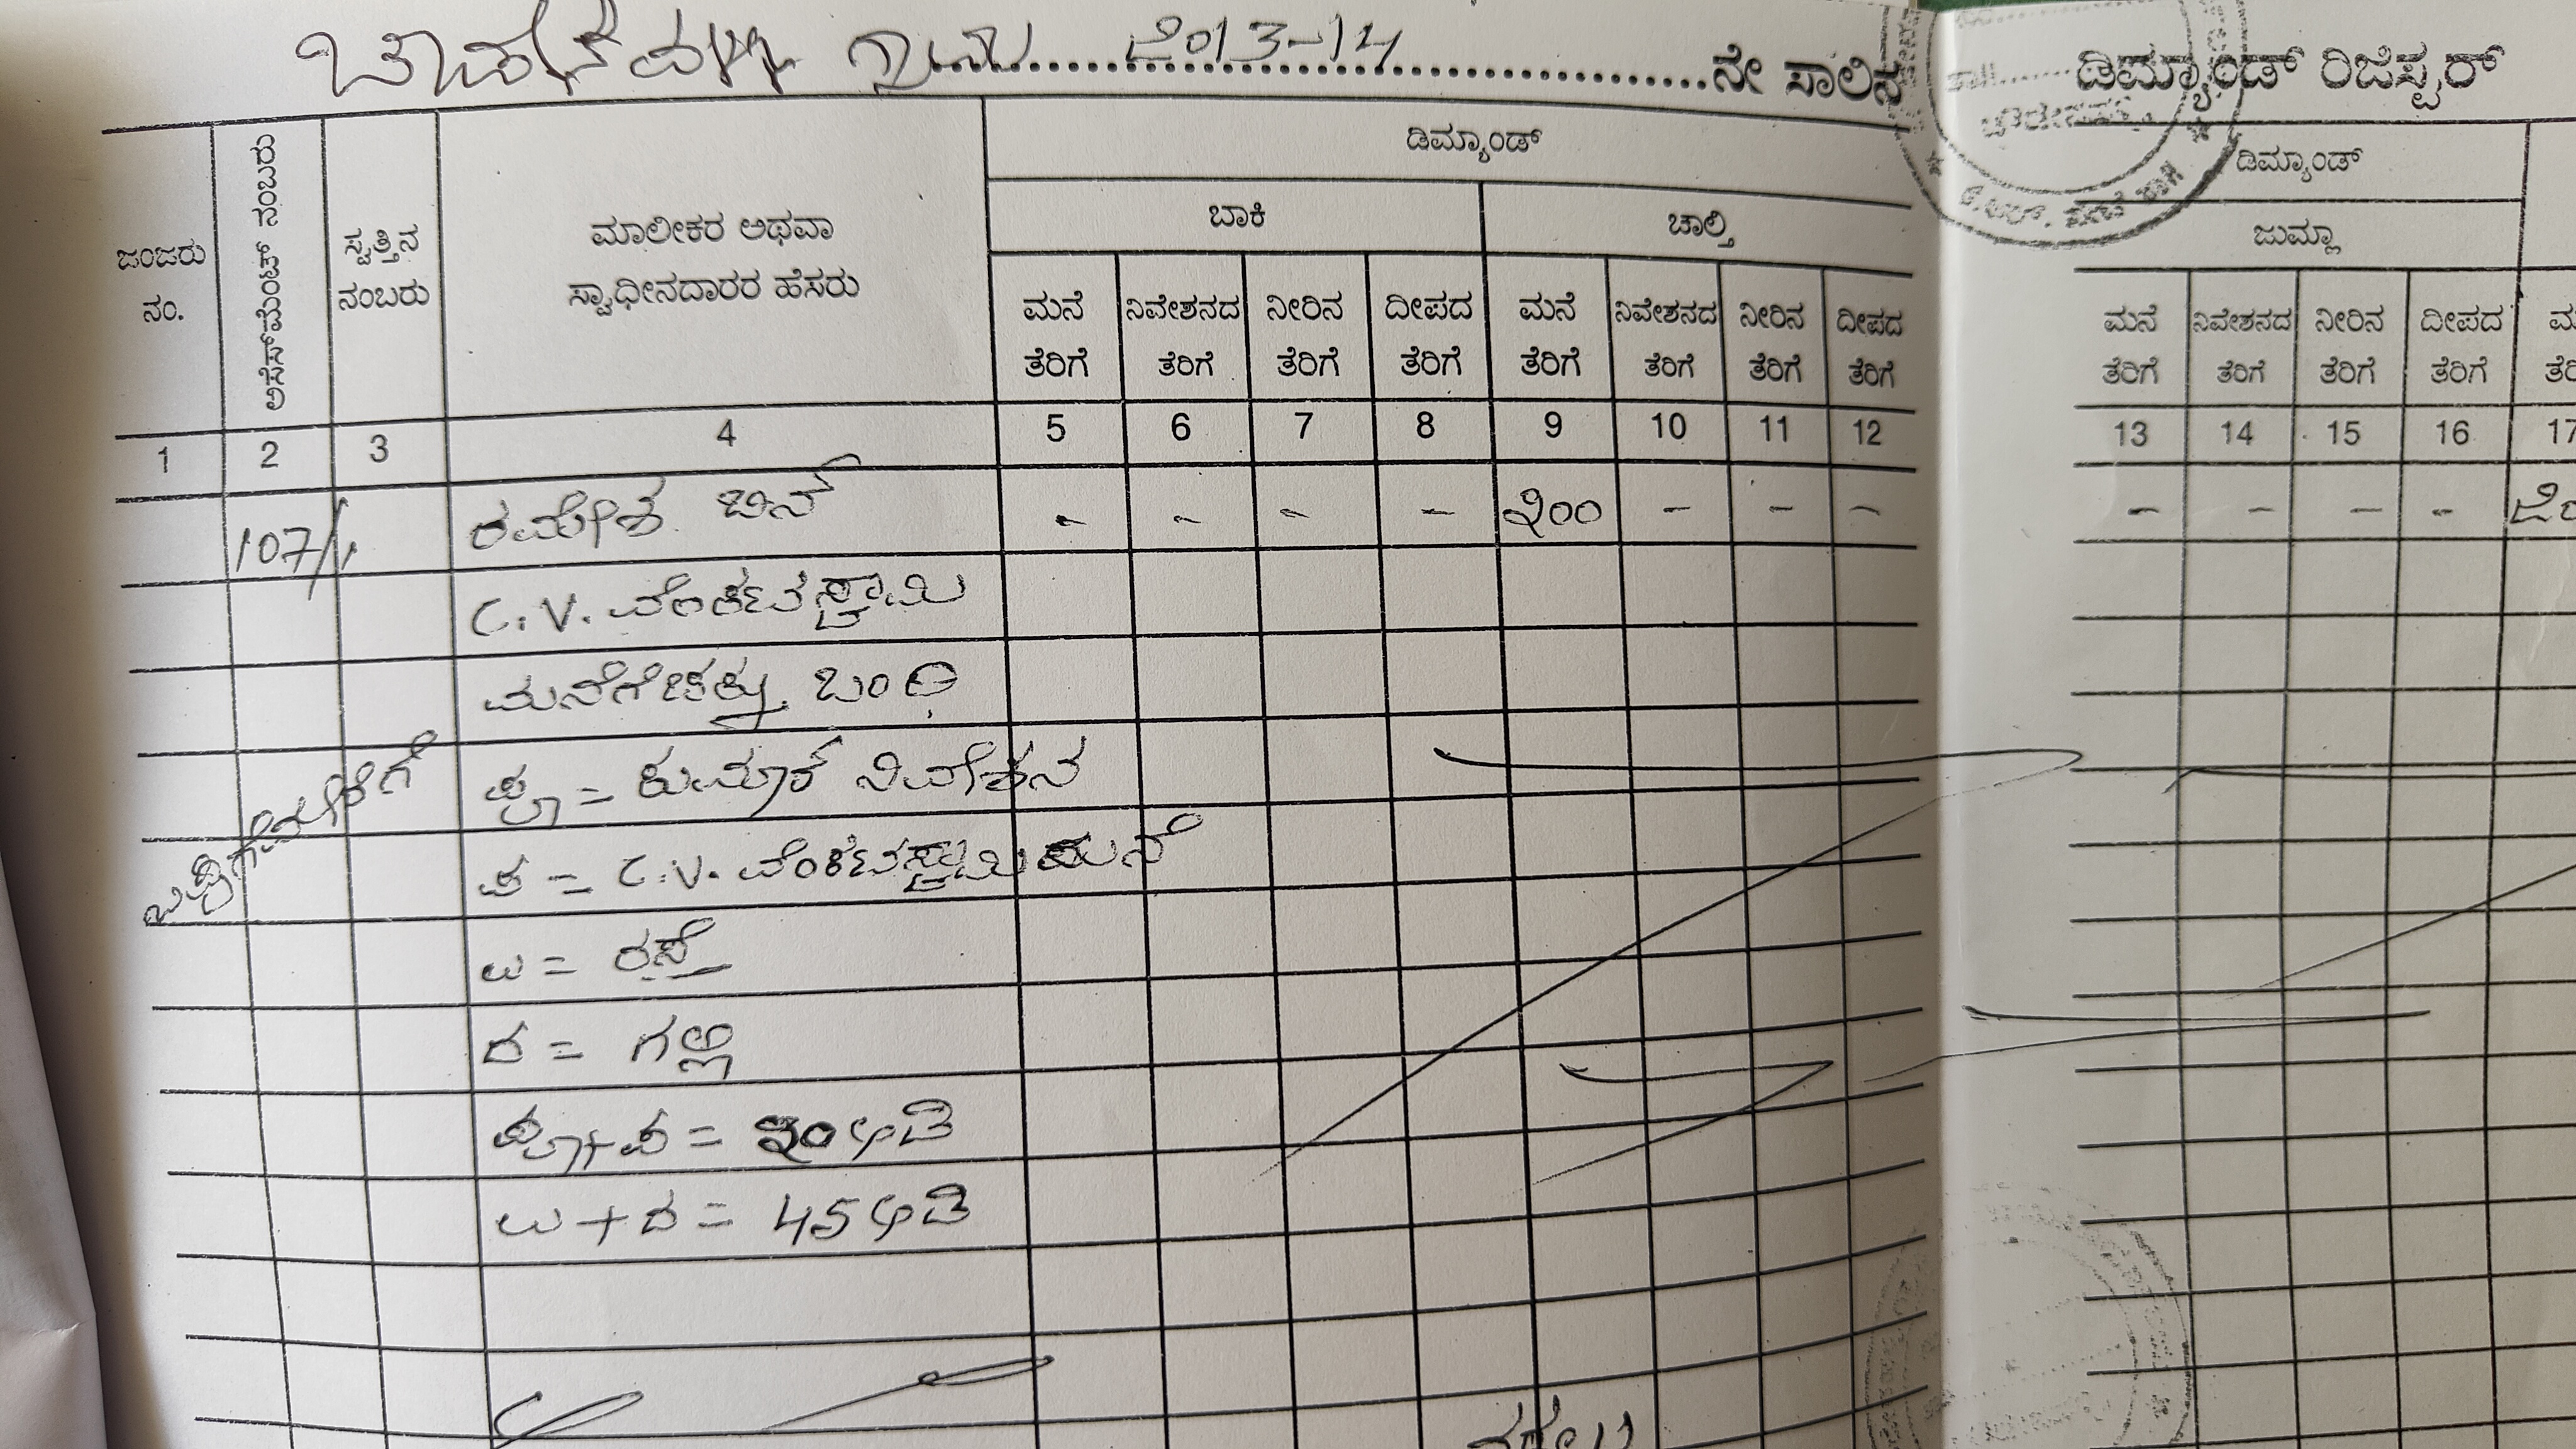 ಗ್ರಾಮ 2013-14 ನೇ ಸಾಲಿನ ಡಿಮ್ಯಾಂಡ್ ರಿಜಿಸ್ಟರ್
ಡಿಮ್ಯಾಂಡ್ ಡಿಮ್ಯಾಂಡ್
ಬಾಕಿ ಚಾಲ್ತಿ ಜುಮ್ಲಾ
ಜಂಜರು ನಂ.
ಅಸೆಸ್‌ಮೆಂಟ್ ನಂಬರು
ಸ್ವತ್ತಿನ ನಂಬರು
ಮಾಲೀಕರ ಅಥವಾ
ಸ್ವಾಧೀನದಾರರ ಹೆಸರು
ಮನೆ ನಿವೇಶನದ ನೀರಿನ ದೀಪದ ಮನೆ ನಿವೇಶನದ ನೀರಿನ ದೀಪದ ಮನೆ ನಿವೇಶನದ ನೀರಿನ ದೀಪದ
ತೆರಿಗೆ ತೆರಿಗೆ ತೆರಿಗೆ ತೆರಿಗೆ ತೆರಿಗೆ ತೆರಿಗೆ ತೆರಿಗೆ ತೆರಿಗೆ ತೆರಿಗೆ ತೆರಿಗೆ ತೆರಿಗೆ ತೆರಿಗೆ
1 2 3 4 5 6 7 8 9 10 11 12 13 14 15 16 17
107/1 ರಮೇಶ ಬಿನ್ - - - - ೨೦೦ - - - - - - -
C.V. ವೆಂಕಟಸ್ವಾಮಿ
ಪೂ = ಕುಮಾರ್ ನಿವೇಶನ
ಪ = C.V. ವೆಂಕಟಸ್ವಾಮಿ ಮನೆ
ಉ = ರಸ್ತೆ
ದ = ಗಲ್ಲಿ
ಪೂ+ಪ = ೩೦ ಅಡಿ
ಉ+ದ = 45 ಅಡಿ